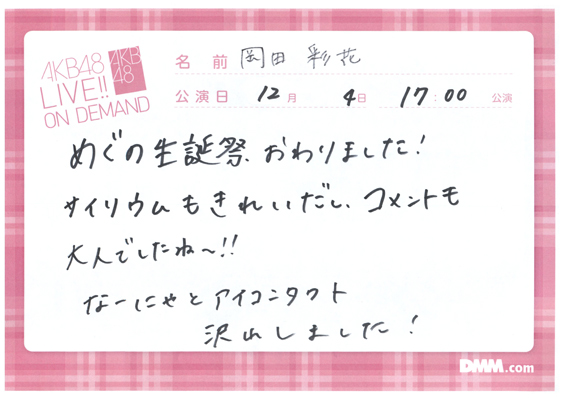 AKB48
LIVE!!
ON DEMAND
AKB
48
名前 岡田 彩花
公演日 12月 4日 17:00 公演
めぐの生誕祭おわりました!
サイリウムもきれいだし、コメントも
大人でしたね〜!!
なーにゃとアイコンタクト
沢山しました!
DMM.com